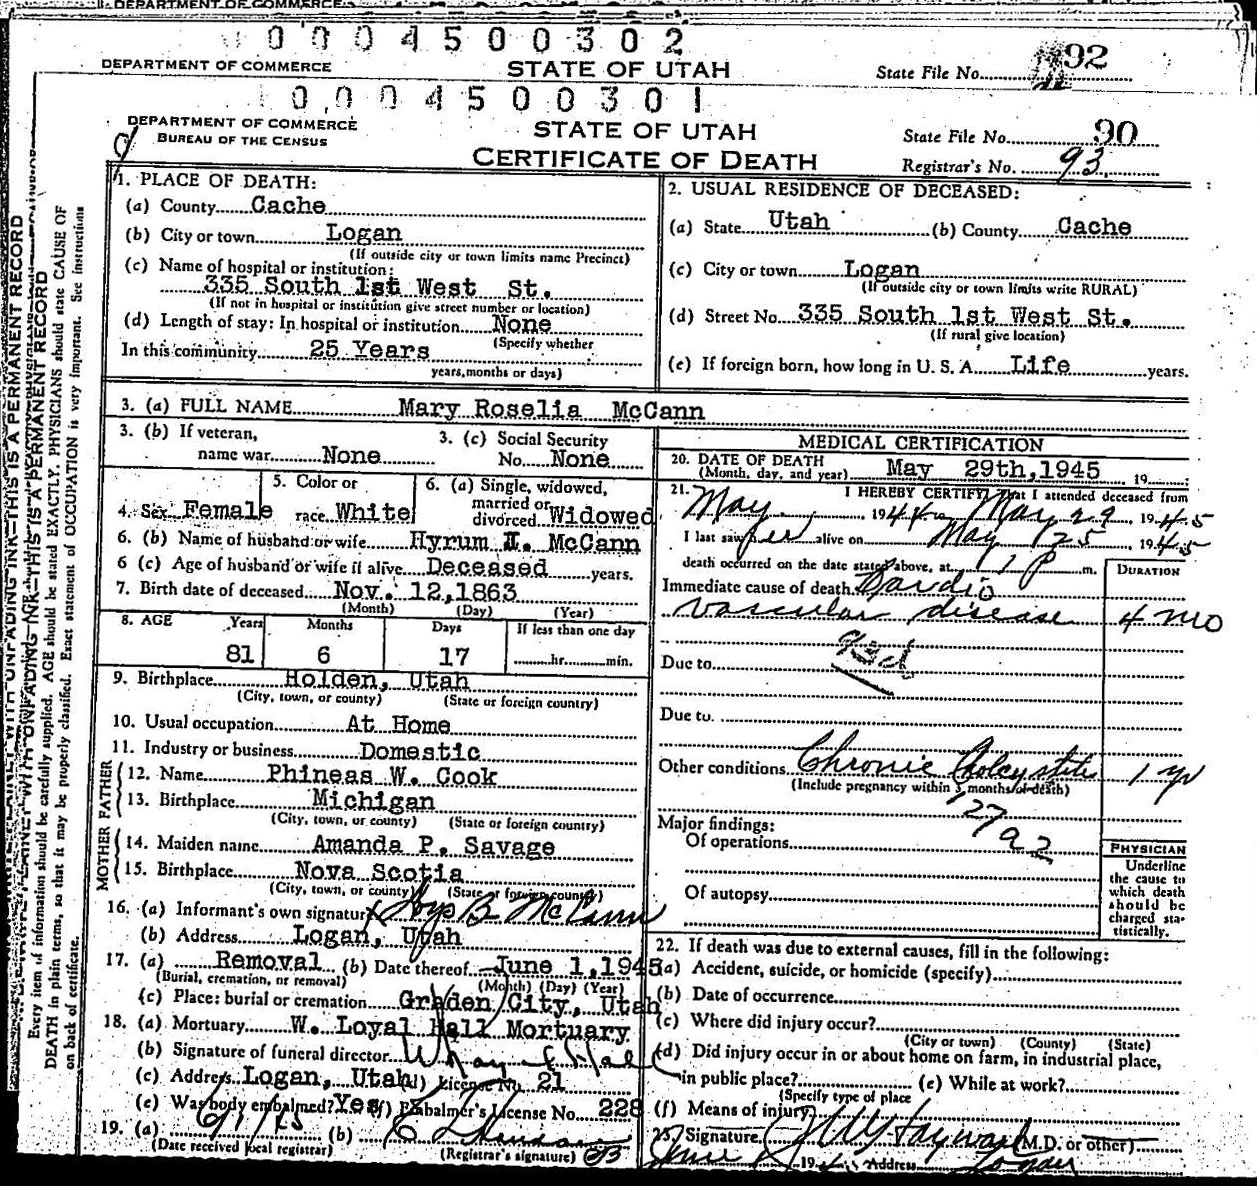 DEPARTMENT OF COMMERCE
0 0 0 4 5 0 0 3 0 2
DEPARTMENT OF COMMERCE STATE OF UTAH State File No. 92
0 0 0 4 5 0 0 3 0 1
DEPARTMENT OF COMMERCE STATE OF UTAH State File No. 90
BUREAU OF THE CENSUS CERTIFICATE OF DEATH Registrar's No. 93
THIS IS A PERMANENT RECORD
WITH UNFADING INK—THIS IS A PERMANENT RECORD
Every item of information should be carefully supplied. AGE should be stated EXACTLY. PHYSICIANS should state CAUSE OF
DEATH in plain terms, so that it may be properly classified. Exact statement of OCCUPATION is very important. See instructions
on back of certificate.
1. PLACE OF DEATH:
(a) County Cache
(b) City or town Logan
(If outside city or town limits name Precinct)
(c) Name of hospital or institution:
335 South 1st West St.
(If not in hospital or institution give street number or location)
(d) Length of stay: In hospital or institution None
(Specify whether
In this community 25 Years
years, months or days)
2. USUAL RESIDENCE OF DECEASED:
(a) State Utah (b) County Cache
(c) City or town Logan
(If outside city or town limits write RURAL)
(d) Street No. 335 South 1st West St.
(If rural give location)
(e) If foreign born, how long in U. S. A. Life years.
3. (a) FULL NAME Mary Roselia McCann
3. (b) If veteran, 3. (c) Social Security
name war None No. None
4. Sex Female 5. Color or race White 6. (a) Single, widowed, married or divorced Widowed
6. (b) Name of husband or wife Hyrum I. McCann
6 (c) Age of husband or wife if alive Deceased years.
7. Birth date of deceased Nov. 12,1863
(Month) (Day) (Year)
8. AGE Years Months Days If less than one day
81 6 17 hr. min.
9. Birthplace Holden, Utah
(City, town, or county) (State or foreign country)
10. Usual occupation At Home
11. Industry or business Domestic
FATHER
12. Name Phineas W. Cook
13. Birthplace Michigan
(City, town, or county) (State or foreign country)
MOTHER
14. Maiden name Amanda P. Savage
15. Birthplace Nova Scotia
(City, town, or county) (State or foreign country)
16. (a) Informant's own signature B McCann
(b) Address Logan, Utah
17. (a) Removal (b) Date thereof June 1,1945
(Burial, cremation, or removal) (Month) (Day) (Year)
(c) Place: burial or cremation Graden City, Utah
18. (a) Mortuary W. Loyal Hall Mortuary
(b) Signature of funeral director Hall
(c) Address Logan, Utah (d) License No. 21
(e) Was body embalmed? Yes (f) Embalmer's License No. 228
19. (a) 6/1/45 (b)
(Date received local registrar) (Registrar's signature)
MEDICAL CERTIFICATION
20. DATE OF DEATH
(Month, day, and year) May 29th,1945 19
21. I HEREBY CERTIFY, that I attended deceased from
May 1944 to May 29 1945
I last saw her alive on May 25 1945
death occurred on the date stated above, at 1 P m.
DURATION
Immediate cause of death Cardio
vascular disease 4 mo
Due to 93d
Due to
Other conditions Chronic Cholcystitis 1 yr
(Include pregnancy within 3 months of death)
127
Major findings: 92
Of operations
Of autopsy
PHYSICIAN
Underline
the cause to
which death
should be
charged sta-
tistically.
22. If death was due to external causes, fill in the following:
(a) Accident, suicide, or homicide (specify)
(b) Date of occurrence
(c) Where did injury occur?
(City or town) (County) (State)
(d) Did injury occur in or about home on farm, in industrial place,
in public place? (e) While at work?
(Specify type of place
(f) Means of injury
23. Signature Hayward (M.D. or other)
June 19 Address Logan